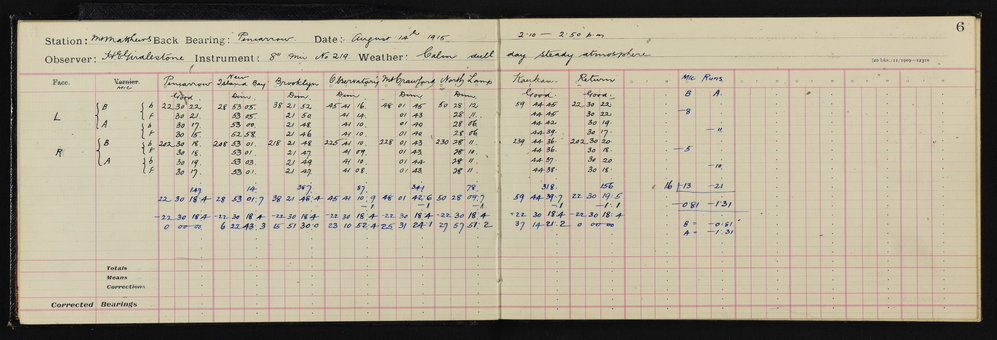 6
Station: McMatthews Back Bearing: Pencarrow Date: August 14th 1915 2.10 — 2.50 p.m
Observer: Instrument: 8" Mic No 219 Weather: Calm dull day steady atmosphere
Face. Vernier. MIC Pencarrow New Island Bay Brooklyn Observatory Mt Crawford North Lamp Kaukau. Return Mic Runs.
Good. Dim. Dim. Dim Dim. Dim. Good. Good. B A.
L B b 22 30 22. 28 53 05. 38 21 52 45 41 16. 48 01 45 50 28 12. 59 44 45 22 30 22.
F 30 21. 53 05. 21 50 41 14. 01 43 28 11. 44 45 30 22. -8
A b 30 17. 53 00. 21 48 41 10. 01 40 28 06. 44 42. 30 19.
F 30 15. 52 58. 21 46 41 10. 01 40 28 06 44 39. 30 17. -11
R B b 202 30 18. 208 53 01. 218 21 48 225 41 10. 228 01 43 230 28 11. 239 44 36. 202 30 20
F 30 18. 53 01. 21 47 41 09. 01 43 28 10. 44 36. 30 18. -5
A b 30 19. 53 03. 21 49 41 10. 01 44 28 11. 44 37. 30 20
F 30 17. 53 01. 21 47 41 08. 01 43 28 11. 44 38. 30 18. -10
147 14 387 87. 341 78. 318. 156 16 -13 -21
22 30 18.4 28 53 01.7 38 21 48.4 45 41 10.9 48 01 42.6 50 28 09.7 59 44 39.7 22 30 19.5 -0.81 -1.31
-.1 -.1 -.1 -.1 -1.1
-22 30 18.4 -22 30 18.4 -22 30 18.4 -22 30 18.4 -22 30 18.4 -22 30 18.4 -22 30 18.4 -22 30 18.4 B = -0.81
0 00 00 6 22 43.3 15 51 30.0 23 10 52.4 25 31 24.1 27 57 51.2 37 14 21.2 0 00 00 A = -1.31
Totals
Means
Corrections
Corrected Bearings